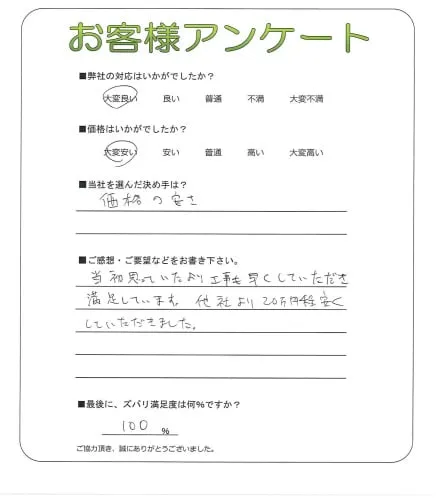 お客様アンケート
■弊社の対応はいかがでしたか？
大変良い 良い 普通 不満 大変不満
■価格はいかがでしたか？
大変安い 安い 普通 高い 大変高い
■当社を選んだ決め手は？
価格の安さ
■ご感想・ご要望などをお書き下さい。
当初思っていたより工事も早くしていただき
満足しています。他社より20万円程安く
していただきました。
■最後に、ズバリ満足度は何%ですか？
100 %
ご協力頂き、誠にありがとうございました。